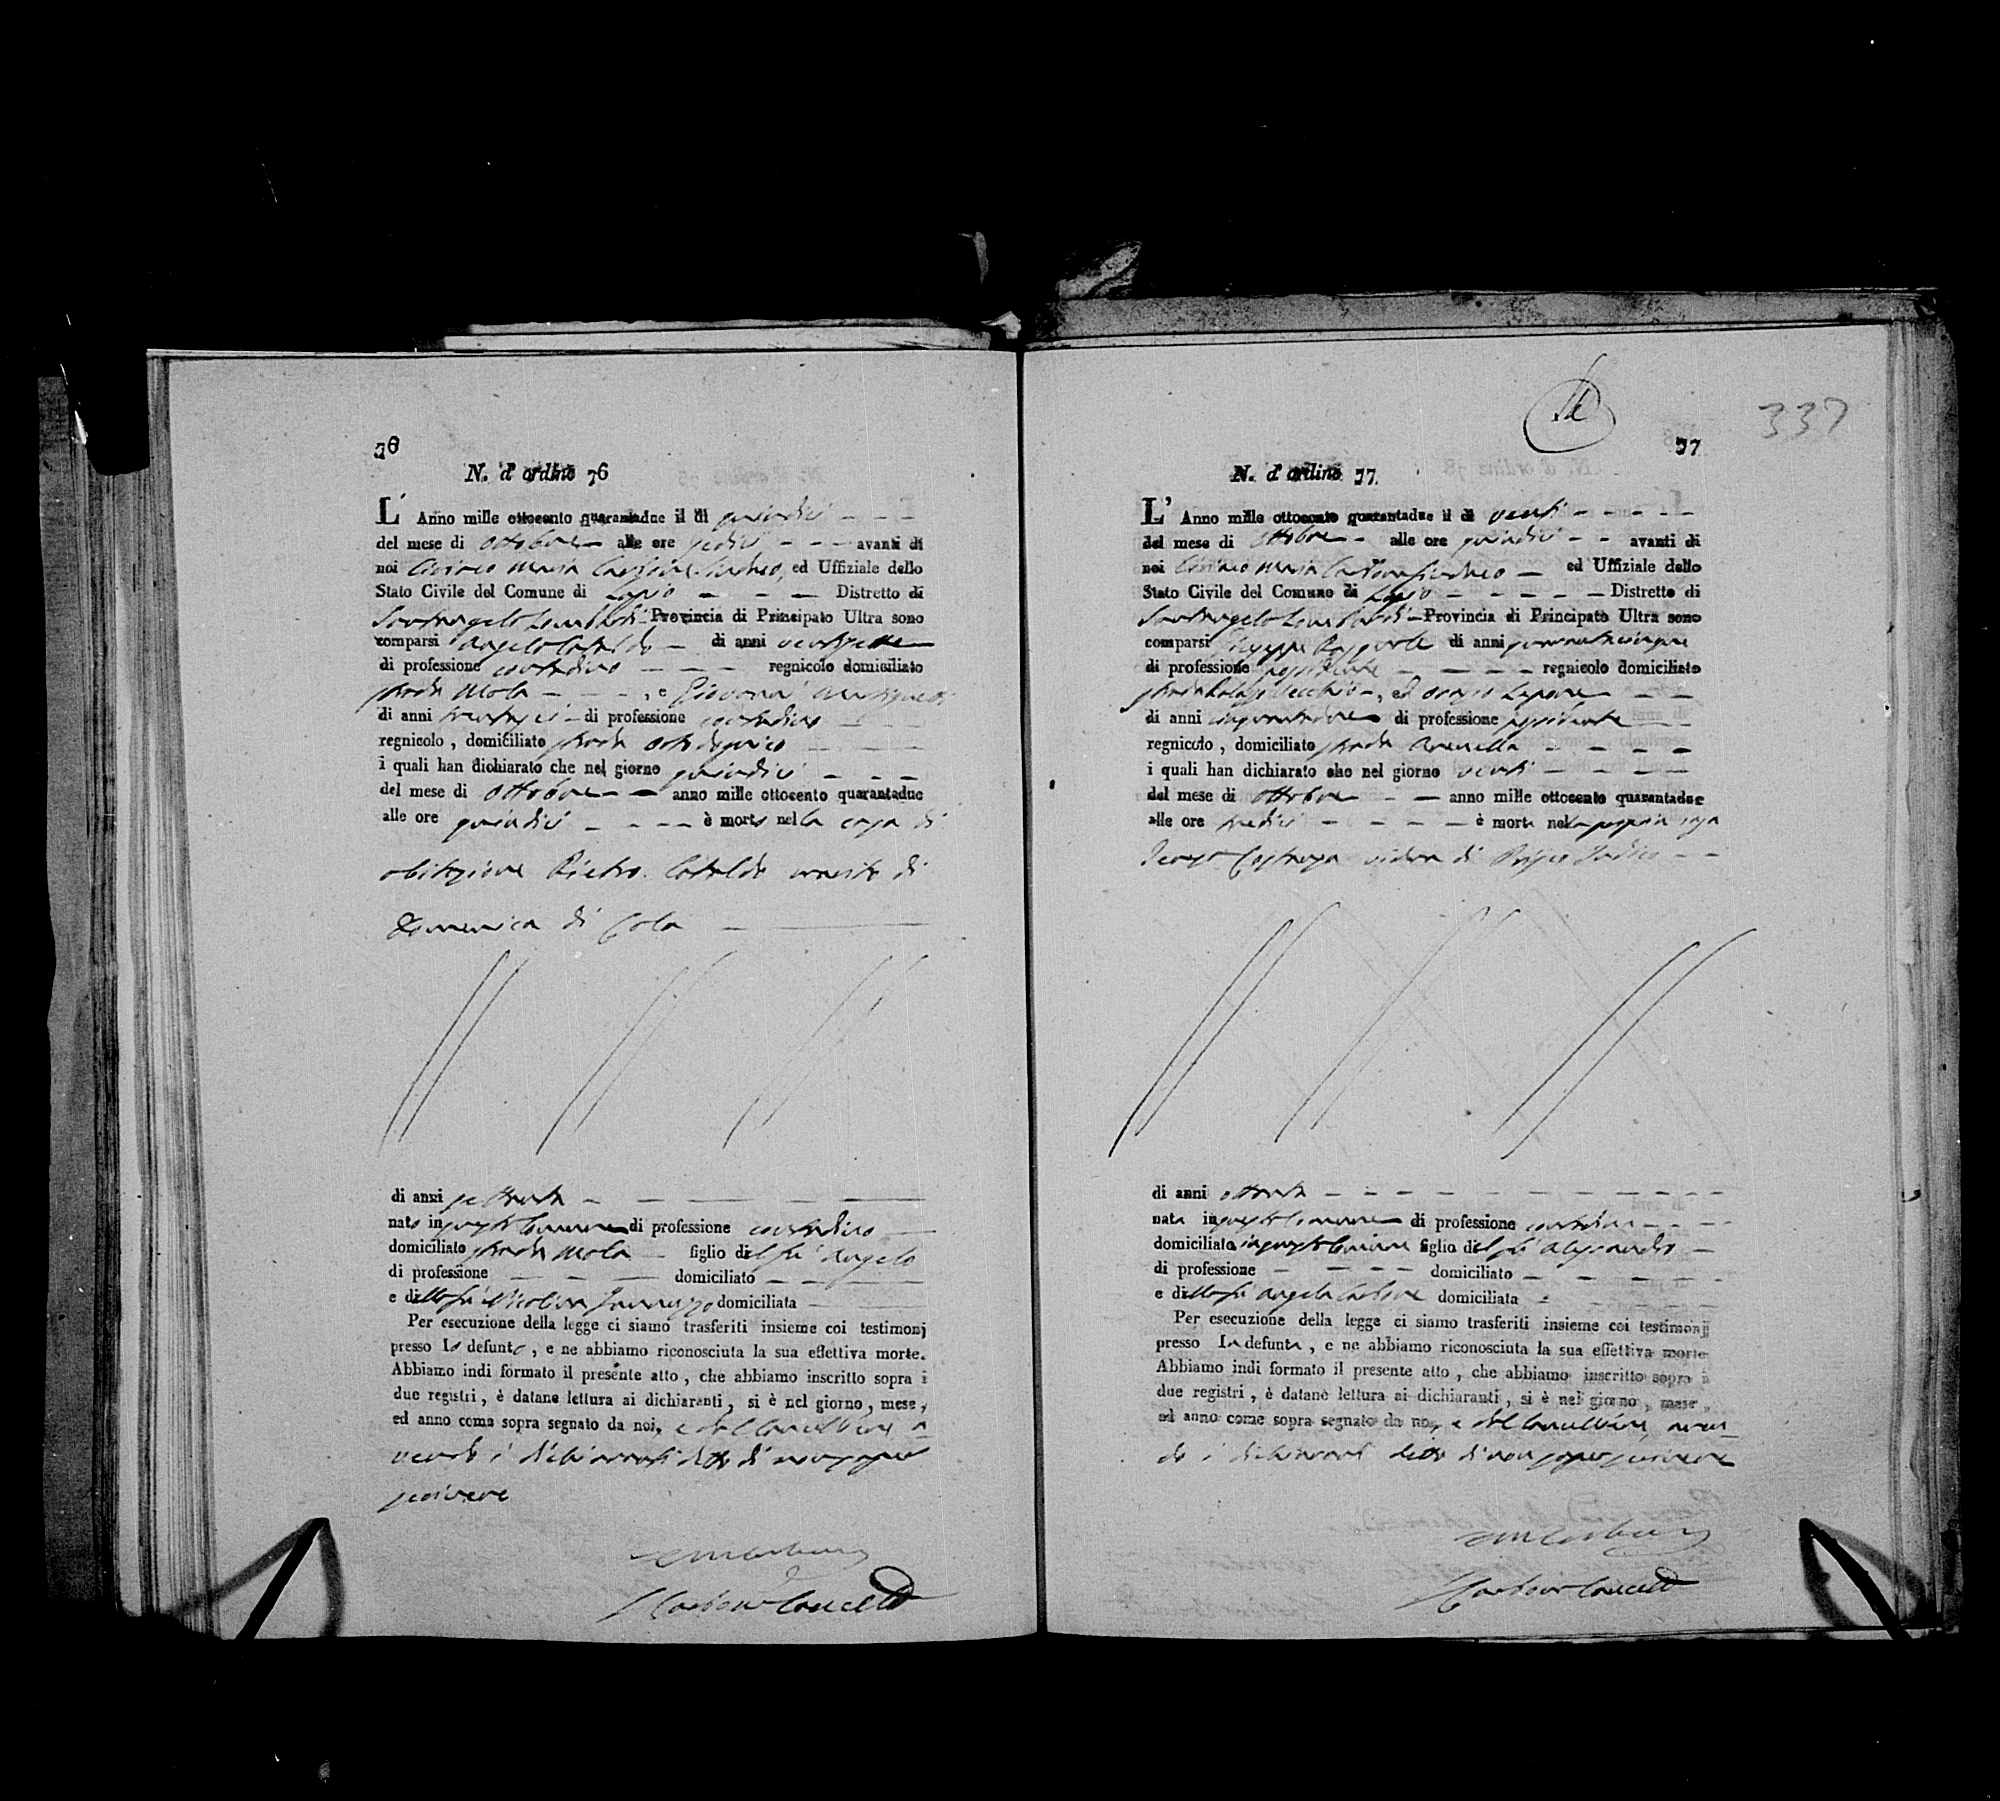 76
N. d' ordine 76
L' Anno mille ottocento quarantadue il dì quindici
del mese di Ottobre alle ore sedici avanti di
noi Ciriaco Maria Carbone Sindaco, ed Uffiziale dello
Stato Civile del Comune di Lapio Distretto di
Santangelo Lombardi Provincia di Principato Ultra sono
comparsi Angelo Cataldo di anni ventisette
di professione contadino regnicolo domiciliato
strada Mola , e Giovanni
di anni trentasei di professione contadino
regnicolo , domiciliato strada
i quali han dichiarato che nel giorno quindici
del mese di Ottobre anno mille ottocento quarantadue
alle ore quindici è morto nella casa di
abitazione Pietro Cataldo marito di
Domenica di Cola
di anni settanta
nato in questo Comune di professione contadino
domiciliato strada Mola figlio del fù Angelo
di professione domiciliato
e della fù Nicolina domiciliata
Per esecuzione della legge ci siamo trasferiti insieme coi testimonj
presso lo defunto , e ne abbiamo riconosciuta la sua effettiva morte.
Abbiamo indi formato il presente atto , che abbiamo inscritto sopra i
due registri , è datane lettura ai dichiaranti, si è nel giorno , mese ,
ed anno come sopra segnato da noi, e dal Cancelliere a
vendo i dichiaranti detto di non saper
scrivere
Carbone Cancell
337
77
N. d' ordine 77
L' Anno mille ottocento quarantadue il dì venti
del mese di Ottobre alle ore quindici avanti di
noi Ciriaco Maria Carbone Sindaco ed Uffiziale dello
Stato Civile del Comune di Lapio Distretto di
Santangelo Lombardi Provincia di Principato Ultra sono
comparsi Giuseppe di anni quarantacinque
di professione regnicolo domiciliato
strada Vecchio , ed Orazio
di anni cinquantadue di professione
regnicolo , domiciliato strada
i quali han dichiarato che nel giorno venti
del mese di Ottobre anno mille ottocento quarantadue
alle ore tredici è morta nella propria casa
vidua di
di anni ottanta
nata in questo Comune di professione contadina
domiciliata in questo Comune figlia del fù Alessandro
di professione domiciliato
e della fù Angela Carbone domiciliata
Per esecuzione della legge ci siamo trasferiti insieme coi testimonj
presso la defunta , e ne abbiamo riconosciuta la sua effettiva morte
Abbiamo indi formato il presente atto , che abbiamo inscritto sopra i
due registri , è datane lettura ai dichiaranti , si è nel giorno , mese ,
ed anno come sopra segnato da noi, e dal Cancelliere, aven
do i dichiaranti detto di non saper scrivere
Carbone Cancell